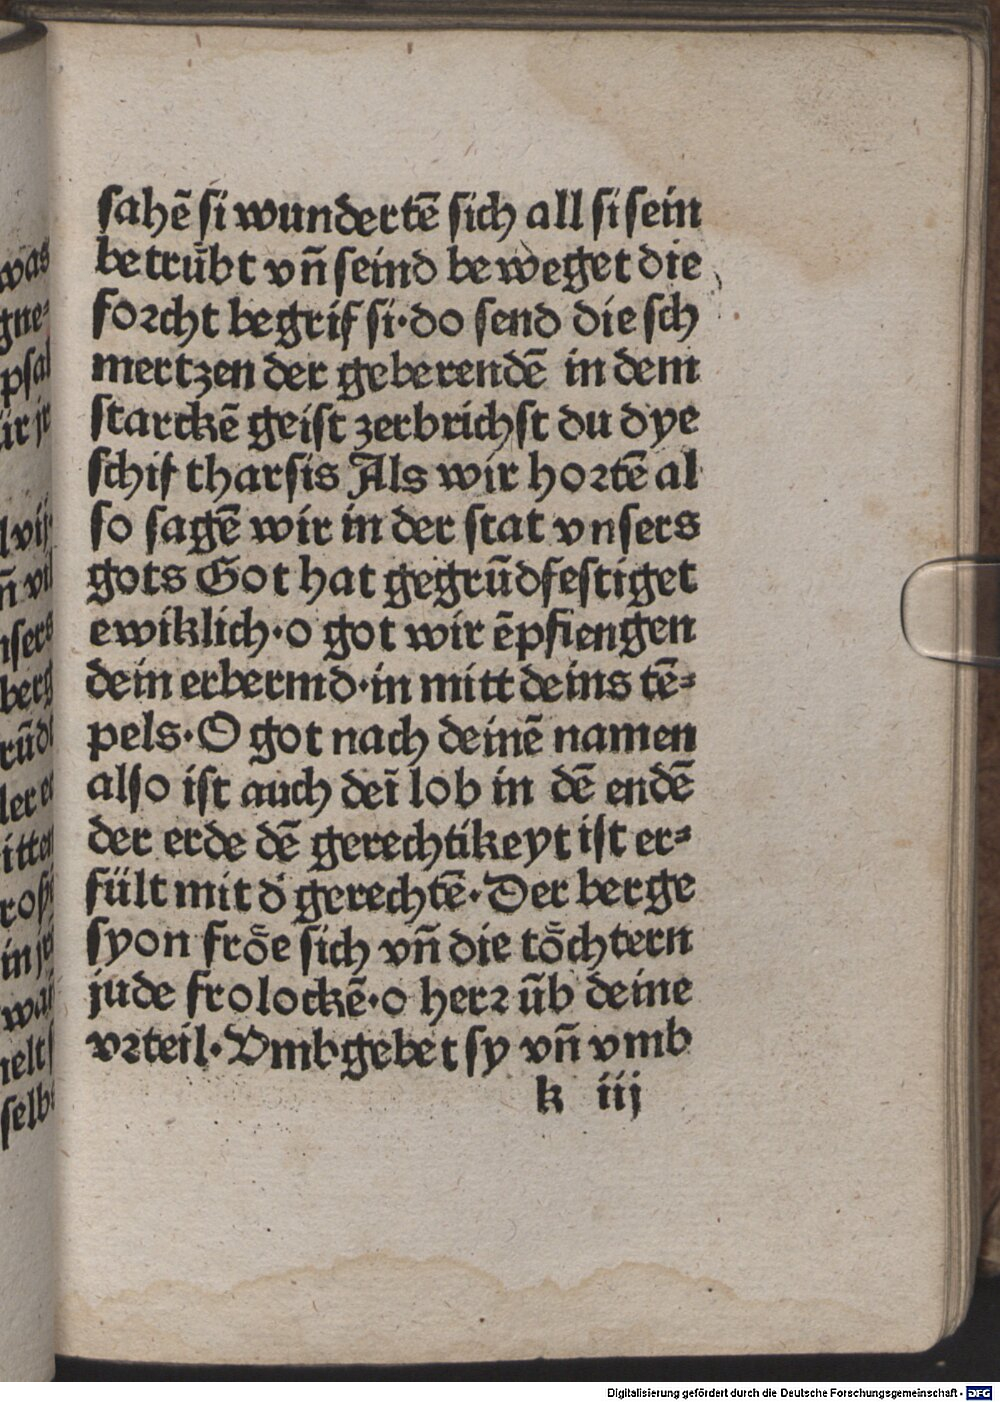 sahē si wunderten̄ sich all si sein
betrūbt vn̄ seind beweget die
forcht begrif si·do send die sch
mertzen der geberendē in dem
starckē geist zerbrichst du dye
schif tharsis Als wir hortē al
so sagē wir in der stat vnsers
gots Got hat gegrūdfestiget
ewiklich·o got wir ēpfiengen
dein erbermd·in mitt deins tē-
pels·O got nach deinē namen
also ist auch deī lob in dē endē
der erde dē gerechtikeyt ist er-
fült mit d' gerechtē·Der berge
syon frőe sich vn̄ die tőchtern
jude frolockē·o herr ūb deine
vrteil·Vmbgebet sy vn̄ vmb
k iij
Digitalisierung gefördert durch die Deutsche Forschungsgemeinschaft - DFG